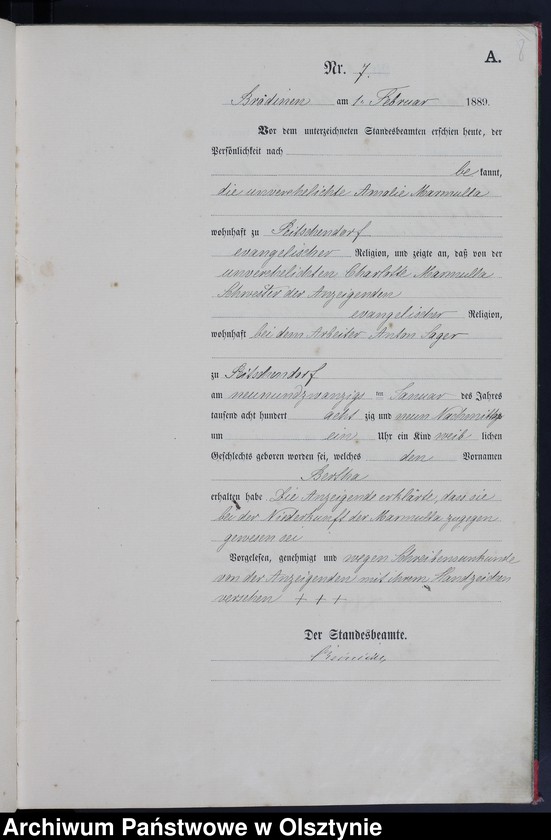 A.
8
Nr. 7.
Brödienen am 1. Februar 1889.
Vor dem unterzeichneten Standesbeamten erschien heute, der
Persönlichkeit nach
be kannt,
die unverehelichte Amalie Marmulla
wohnhaft zu Peitschendorf
evangelischer Religion, und zeigte an, daß von der
unverehelichten Charlotte Marmulla
Schwester der Anzeigenden
evangelischer Religion,
wohnhaft bei dem Arbeiter Anton Sager
zu Peitschendorf
am neunundzwanzigs ten Januar des Jahres
tausend acht hundert acht zig und neun Nachmittags
um ein Uhr ein Kind weib lichen
Geschlechts geboren worden sei, welches den Vornamen
Bertha
erhalten habe Die Anzeigende erklärte, dass sie
bei der Niederkunft der Marmulla zugegen
gewesen sei
Vorgelesen, genehmigt und wegen Schreibensunkunde
von der Anzeigenden mit ihrem Handzeichen
versehen + + +
Der Standesbeamte.
Archiwum Państwowe w Olsztynie